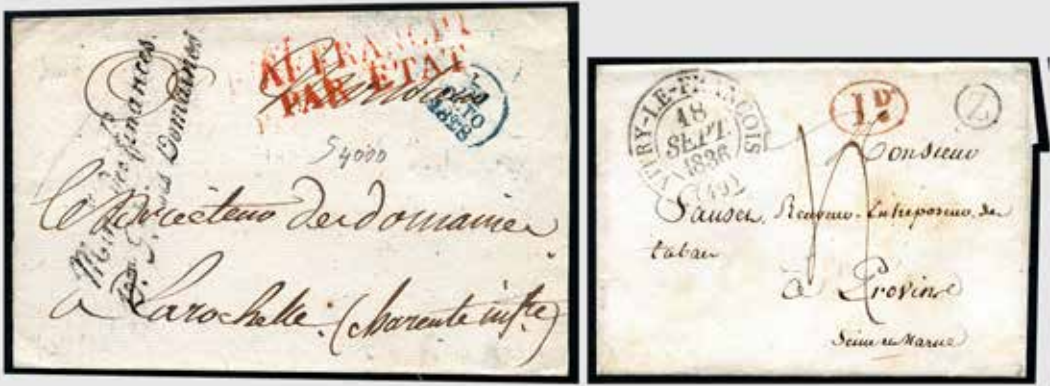 Min. des finances.
Domaines
AL FRANCHI
PAR ETAT
1828
54000
le Directeur des domaines
a Larochelle. (charente infre)
VITRY-LE-FRANÇOIS
18
SEPT.
1836
(49)
1D
Z
Monsieur
Receveur-Entreposeur de
tabac
à Provins
Seine et Marne